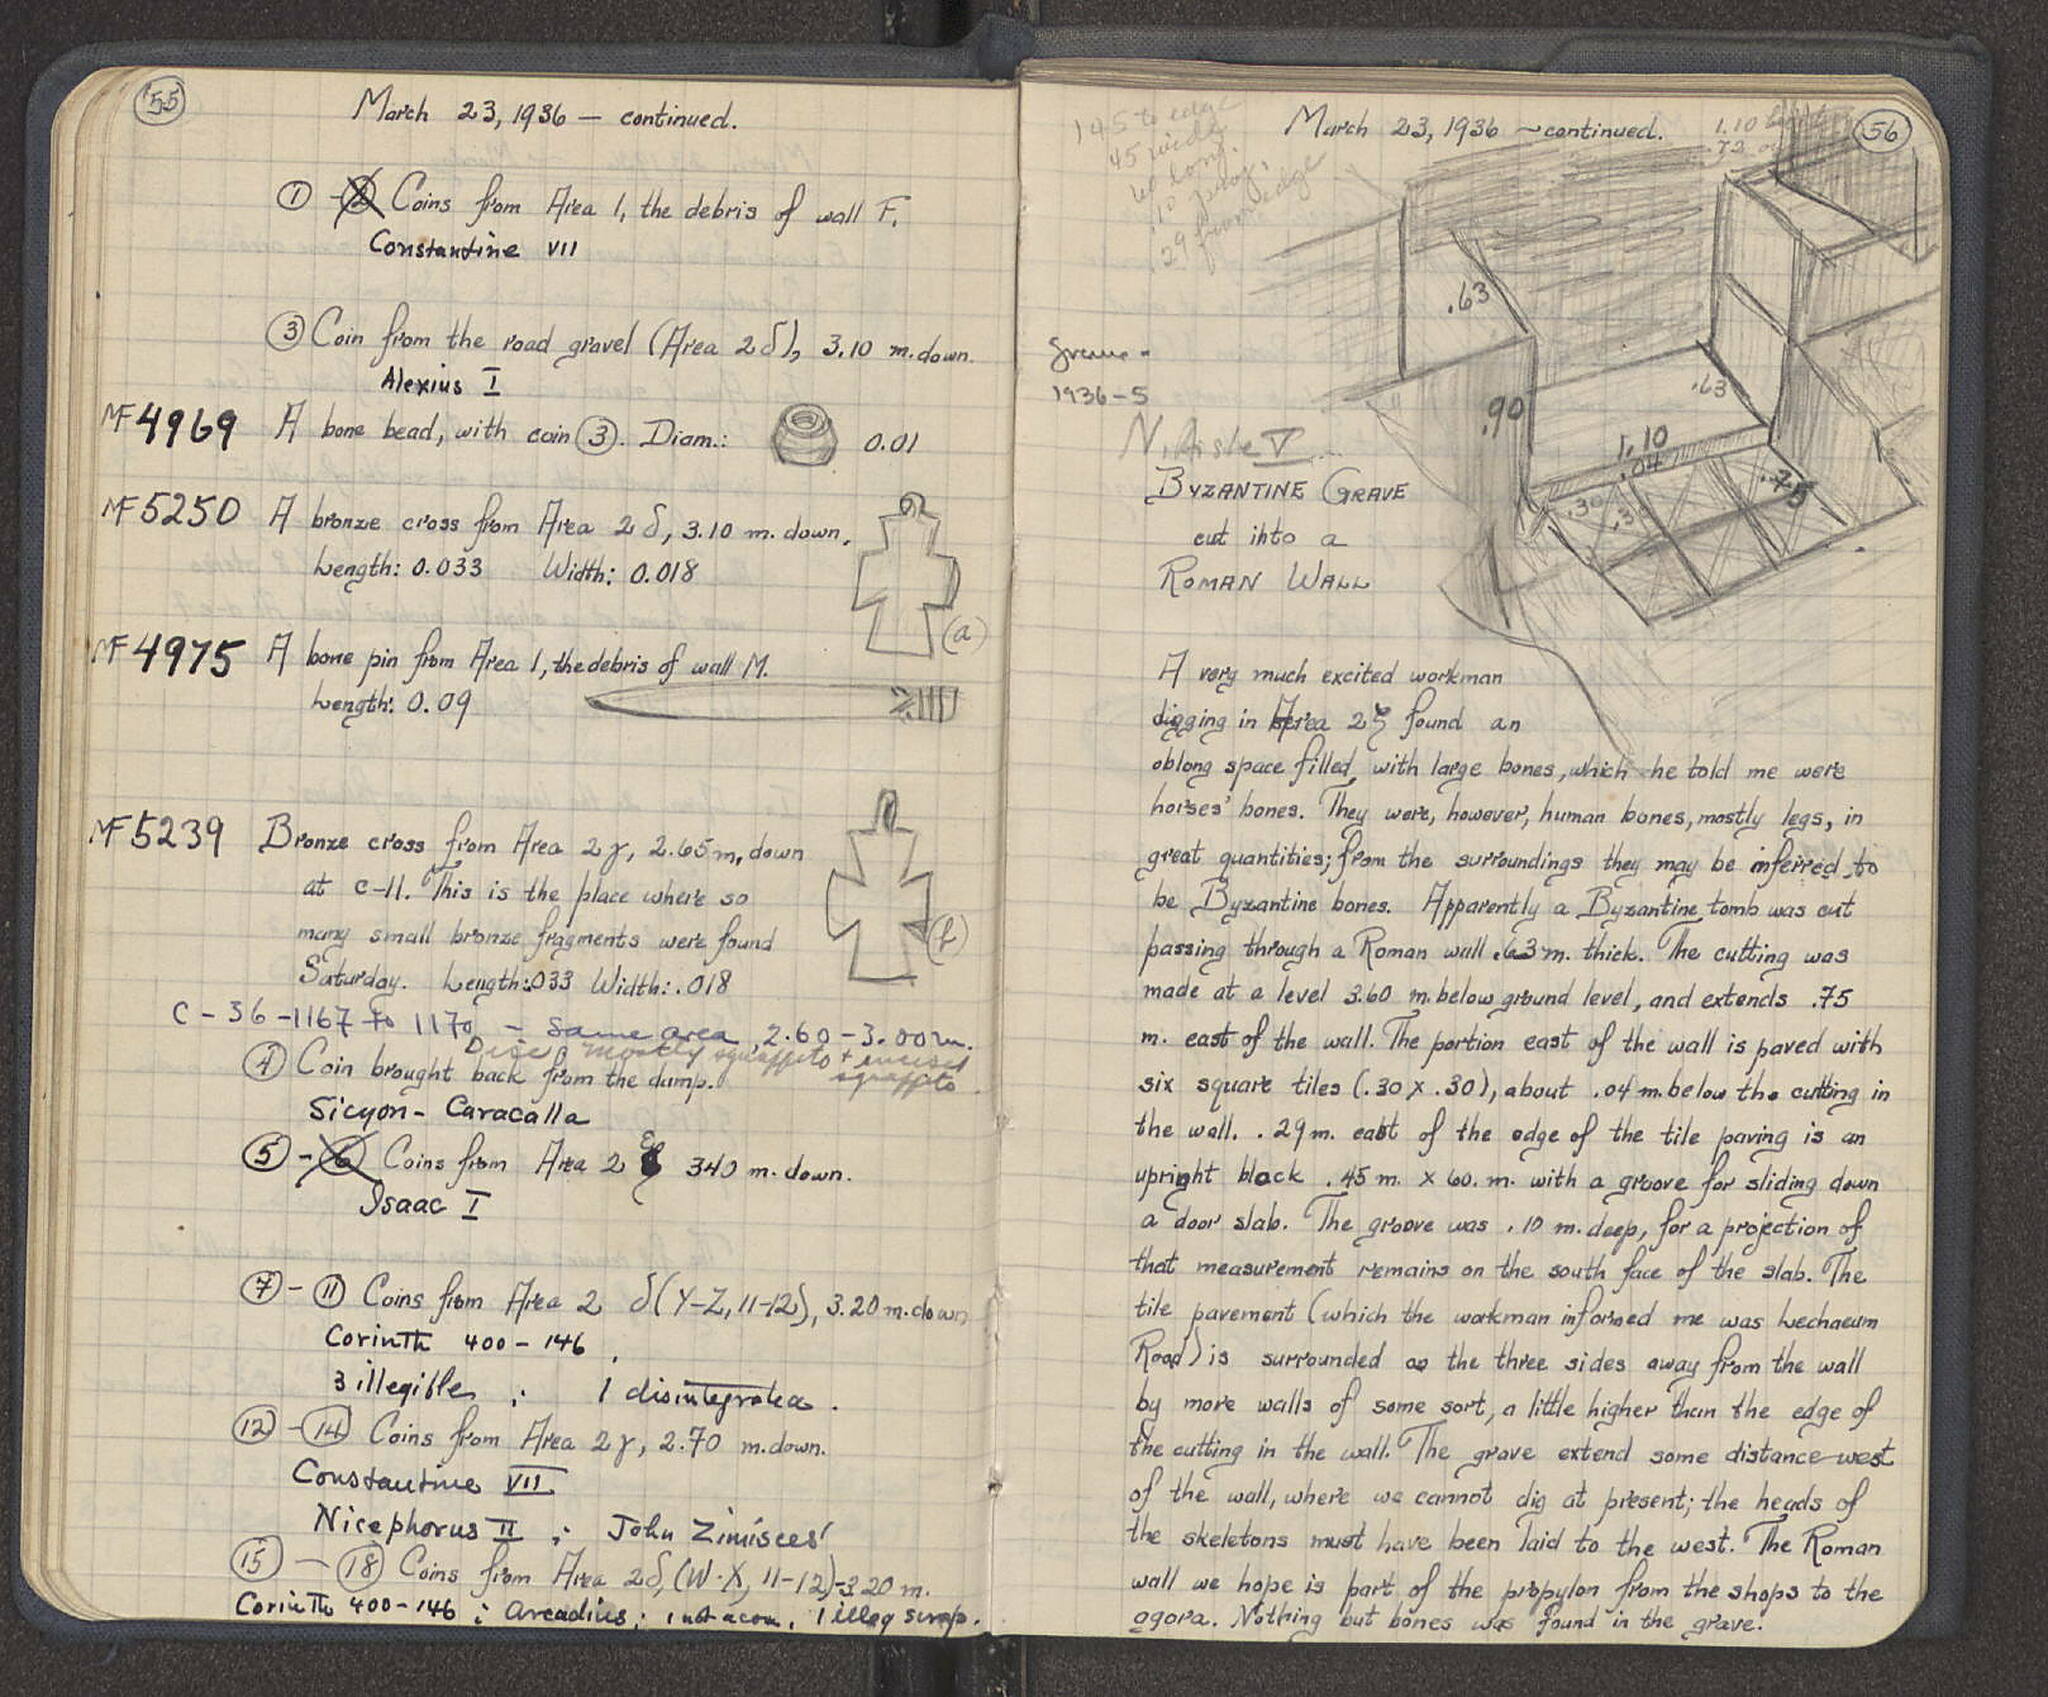 55
March 23, 1936 — continued.
① - ② Coins from Area 1, the debris of wall F.
Constantine VII
③ Coin from the road gravel (Area 2 δ), 3.10 m. down.
Alexius I
MF 4969 A bone bead, with coin ③. Diam.: 0.01
MF 5250 A bronze cross from Area 2 δ, 3.10 m. down.
Length: 0.033 Width: 0.018
(a)
MF 4975 A bone pin from Area 1, the debris of wall M.
Length: 0.09
MF 5239 Bronze cross from Area 2γ, 2.65 m. down
at C-11. This is the place where so
many small bronze fragments were found
Saturday. Length: .033 Width: .018
(b)
C - 36 - 1167 to 1170 - same area, 2.60 - 3.00 m.
mostly sgraffito + incised
sgraffito
④ Coin brought back from the dump.
Sicyon - Caracalla
⑤ - ⑥ Coins from Area 2 340 m. down.
Isaac I
⑦ - ⑪ Coins from Area 2 δ (Y-Z, 11-12), 3.20 m. down
Corinth 400 - 146
3 illegible ; 1 disintegrated.
⑫ - ⑭ Coins from Area 2γ, 2.70 m. down.
Constantine VII
Nicephorus II ; John Zimisces
⑮ — ⑱ Coins from Area 2δ, (W-X, 11-12) - 3.20 m.
Corinth 400 - 146 ; Arcadius ; 1 not a coin, 1 illeg scrap.
56
March 23, 1936 — continued.
1.10
.72
1.45 to edge
45 wide
60 long.
.10 proj.
.29 from edge
.63
.63
.90
1.10
.04
.30
.30
.75
Grave -
1936 - 5
N. Aisle V
BYZANTINE GRAVE
cut into a
ROMAN WALL
A very much excited workman
digging in Area 2ζ found an
oblong space filled with large bones, which he told me were
horses' bones. They were, however, human bones, mostly legs, in
great quantities; from the surroundings they may be inferred to
be Byzantine bones. Apparently a Byzantine tomb was cut
passing through a Roman wall .63 m. thick. The cutting was
made at a level 3.60 m. below ground level, and extends .75
m. east of the wall. The portion east of the wall is paved with
six square tiles (.30 x .30), about .04 m. below the cutting in
the wall. .29 m. east of the edge of the tile paving is an
upright block .45 m. x 60. m. with a groove for sliding down
a door slab. The groove was .10 m. deep, for a projection of
that measurement remains on the south face of the slab. The
tile pavement (which the workman informed me was Lechaeum
Road) is surrounded on the three sides away from the wall
by more walls of some sort, a little higher than the edge of
the cutting in the wall. The grave extend some distance west
of the wall, where we cannot dig at present; the heads of
the skeletons must have been laid to the west. The Roman
wall we hope is part of the propylon from the shops to the
agora. Nothing but bones was found in the grave.